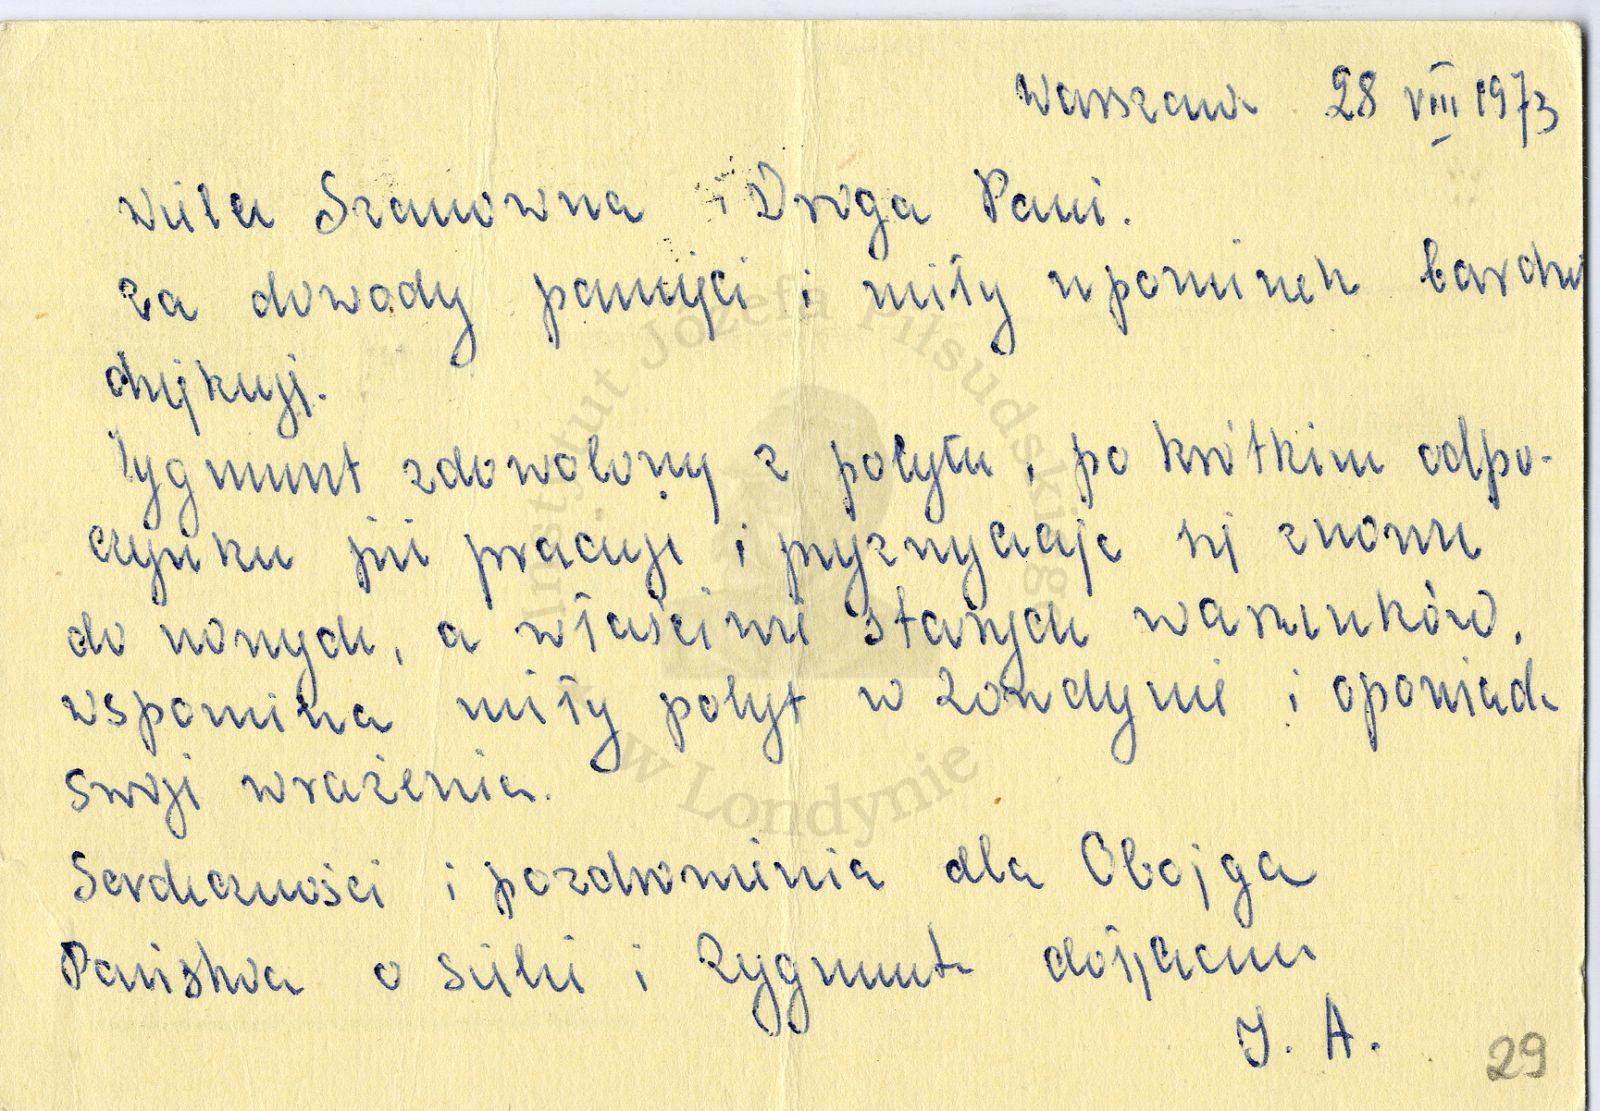 Warszawa 28 VIII 1973
Wielce Szanowna i Droga Pani.
Za dowody pamięci i miły upominek bardzo
dziękuję.
Zygmunt zdowolony z pobytu, po krótkim odpo-
czynku już pracuje i przyzwyczaja się znowu
do nowych, a właściwie starych warunków.
wspomina miły pobyt w Londynie i opowiada
swoje wrażenia.
Serdeczności i pozdrowienia dla Obojga
Państwa o siebie i Zygmunta dołączam
J. A.
29
Instytut Józefa Piłsudskiego
w Londynie